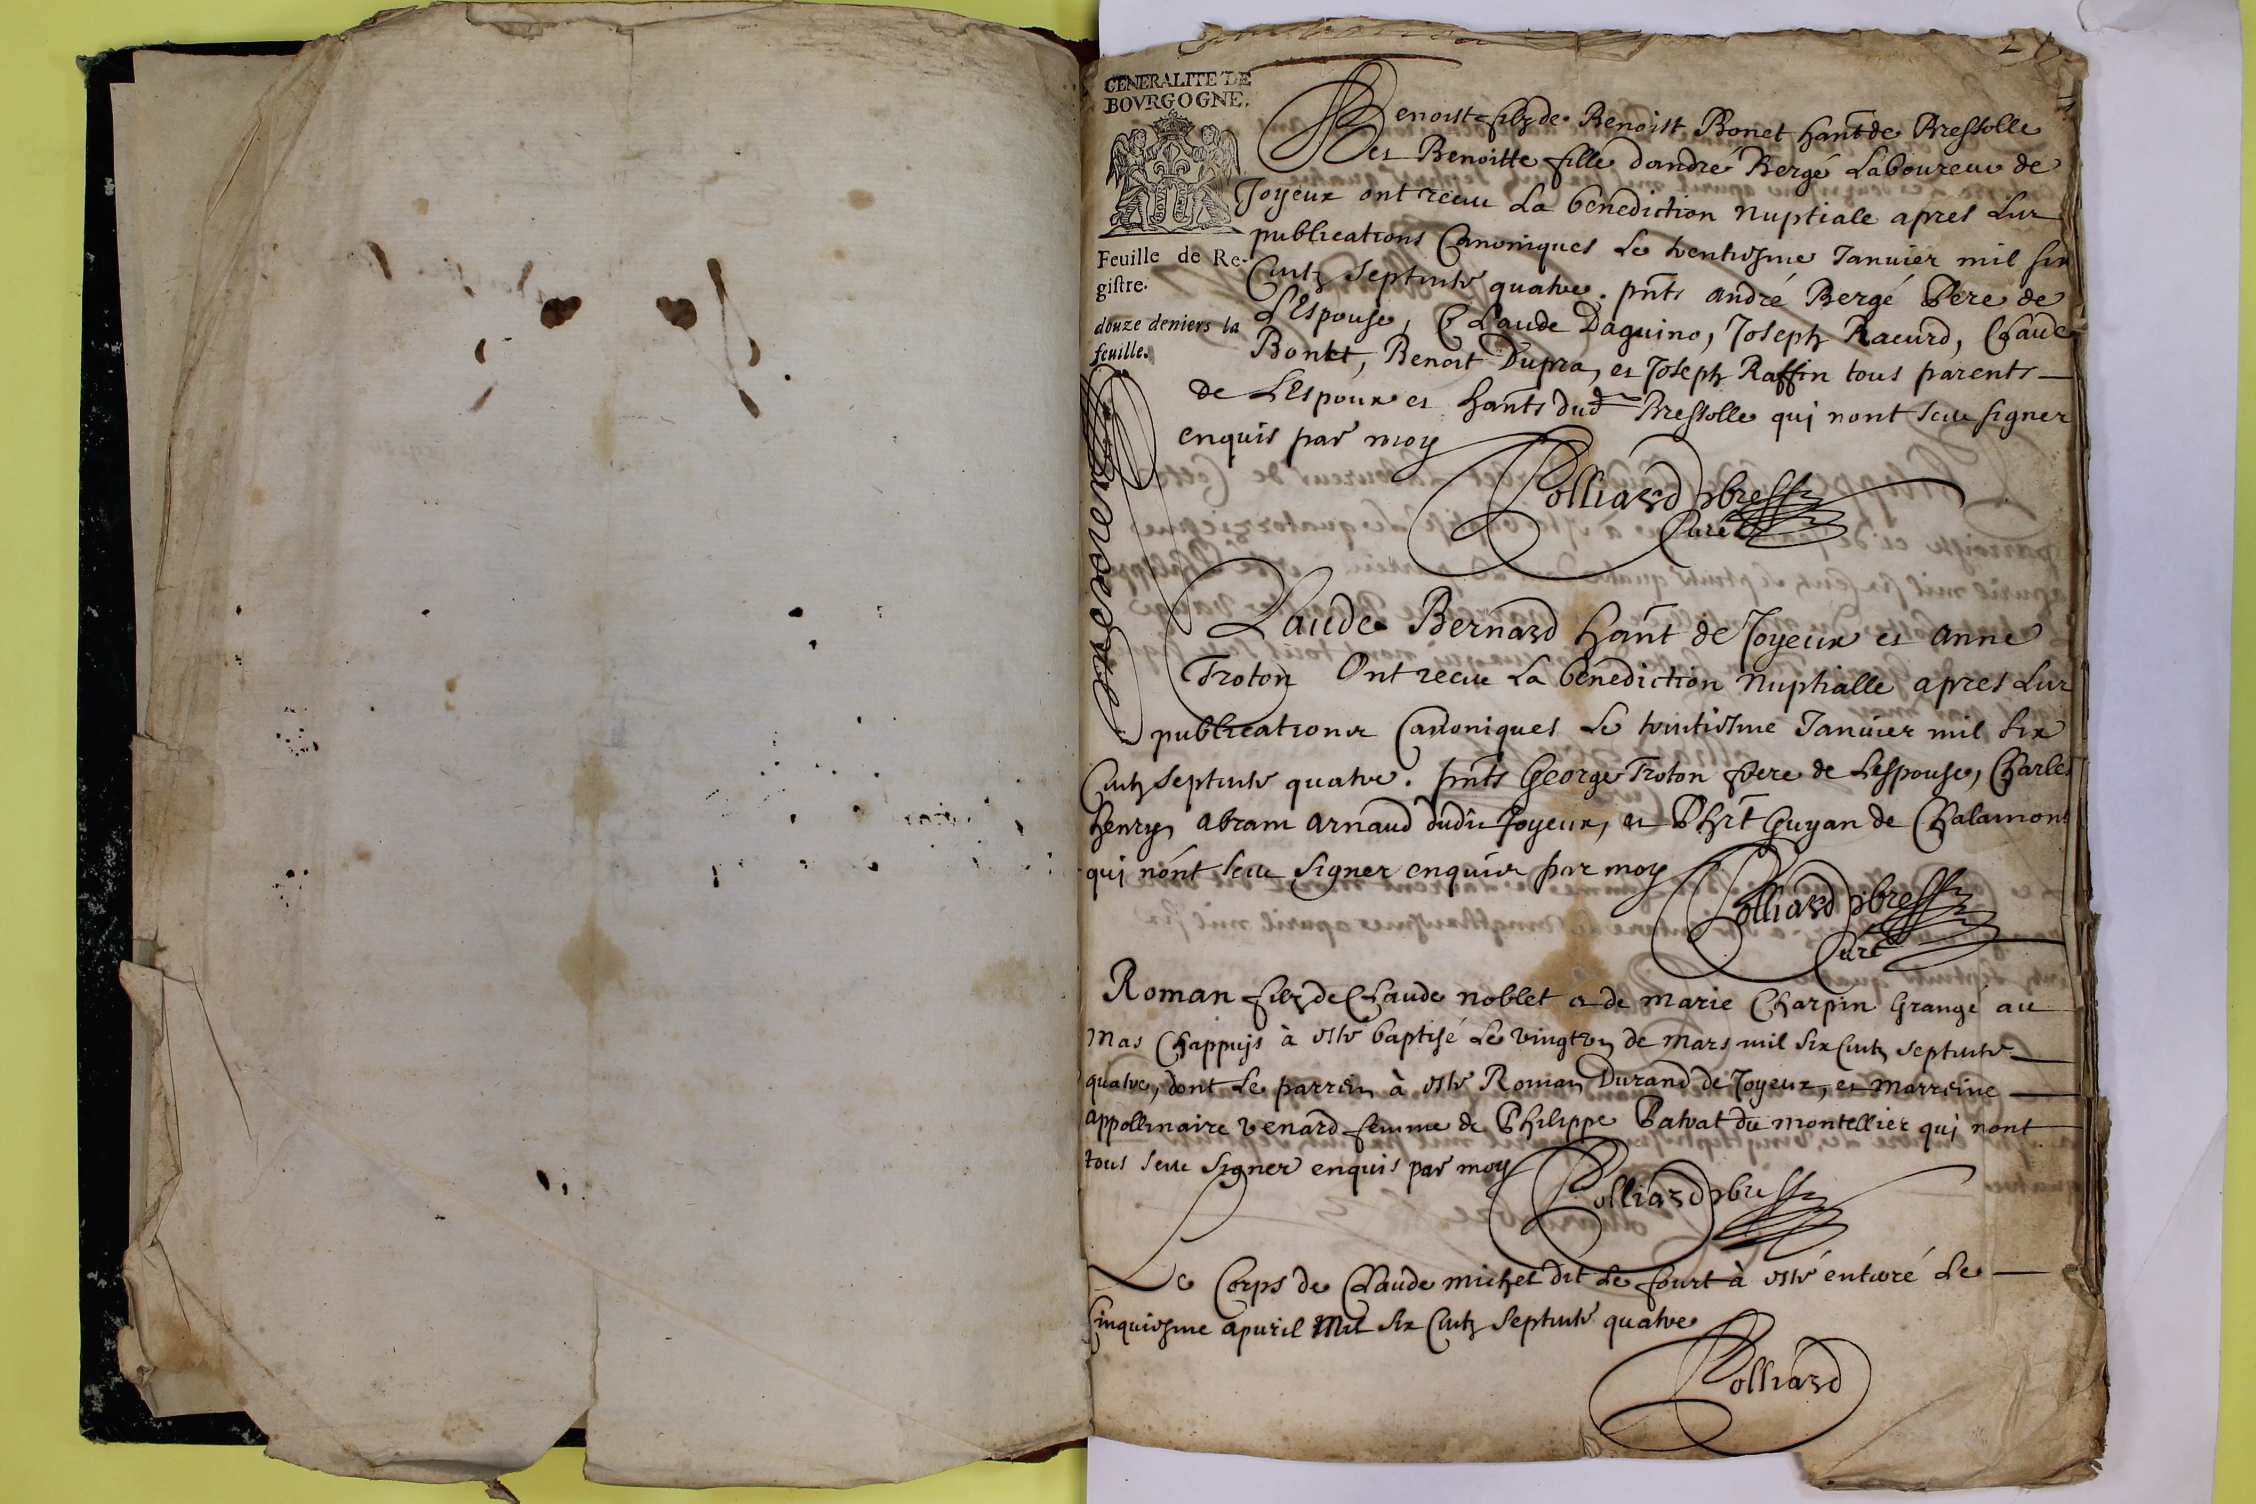 GENERALITE DE
BOVRGOGNE.
Feuille de Re-
gistre.
douze deniers la
feuille.
Benoist filz de Benoist Bonet hant de Bressolle
et Benoitte fille dandré Bergé Laboureur de
Joyeux ont receu La benediction nuptiale apres Lur
publications Canoniques Le trentiesme Januier mil six
Centz septente quatre. pnts andré Bergé Pere de
L'Espouse, Claude Daguino, Joseph Racurd, Claude
Bonet, Benoit Dupra, et Joseph Raffin tous parents
de L'Espoux et hants dud Bressolle qui nont sceu signer
enquis par moy
Colliard pbre
Curé
Claude Bernard hant de Joyeux et anne
Troton Ont receu La benediction Nuptialle apres Lur
publications Canoniques Le trentiesme Januier mil six
Centz septente quatre. pnts George Troton frere de Lespouse, Charles
henry, abram arnaud dudit Joyeux, et Phrt Guyan de Chalamont
qui nont sceu signer enquis par moy
Colliard pbre
Curé
Roman filz de Claude noblet et de marie Charpin Grangé au
Mas Chappuys à esté baptisé Le de Mars mil six Centz septente
quatre, dont Le parrein à esté Roman Durand de Joyeux, et marreine
appollinaire venard femme de Philippe Patrat du montellier qui nont
tous sceu signer enquis par moy
Colliard pbre
Le Corps de Claude michel dit Le fourt à esté enterré Le
Cinquiesme apuril Mil six Centz septente quatre
Colliard